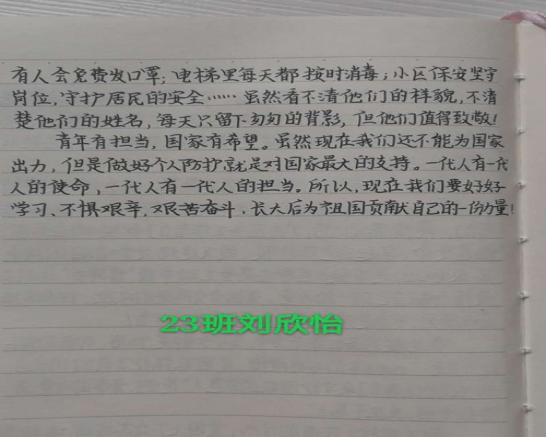 有人会免费发口罩；电梯里每天都按时消毒；小区保安坚守
岗位，守护居民的安全……虽然看不清他们的样貌，不清
楚他们的姓名，每天只留下匆匆的背影，但他们值得致敬！
青年有担当，国家有希望。虽然现在我们还不能为国家
出力，但是做好个人防护就是对国家最大的支持。一代人有一代
人的使命，一代人有一代人的担当。所以，现在我们要好好
学习、不惧艰辛，艰苦奋斗，长大后为祖国贡献自己的一份力量！
23班刘欣怡